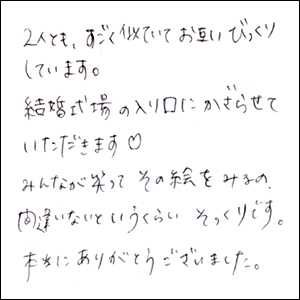 2人とも、すごく似ていてお互いびっくり
しています。
結婚式場の入り口にかざらせて
いただきます♡
みんなが笑って その絵をみるの、
間違いないというくらい そっくりです。
本当にありがとうございました。